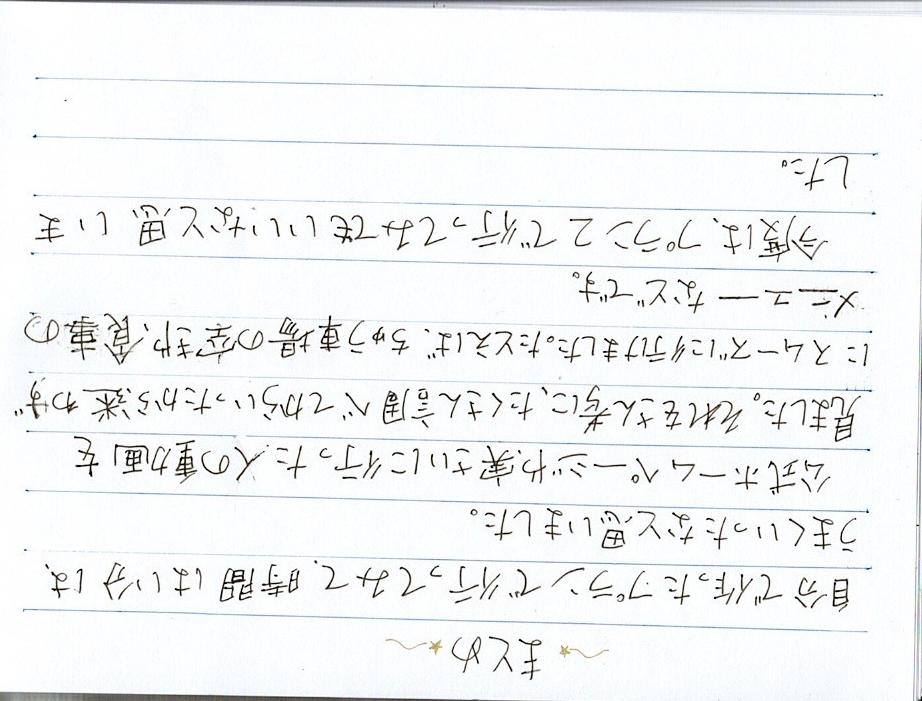 まとめ
自分で作ったプランで行ってみて、時間はい分は、
うまくいったなと思いました。
公式ホームページや、実さいに行った人の動画を
見ました。それをさん考に、たくさん調べてからいったから迷わず
にスムーズに行けました。たとえば、ちゅう車場の空きや、食事の
メニューなどです。
今度は、プラン2で行ってみてもいいなと思いま
した。